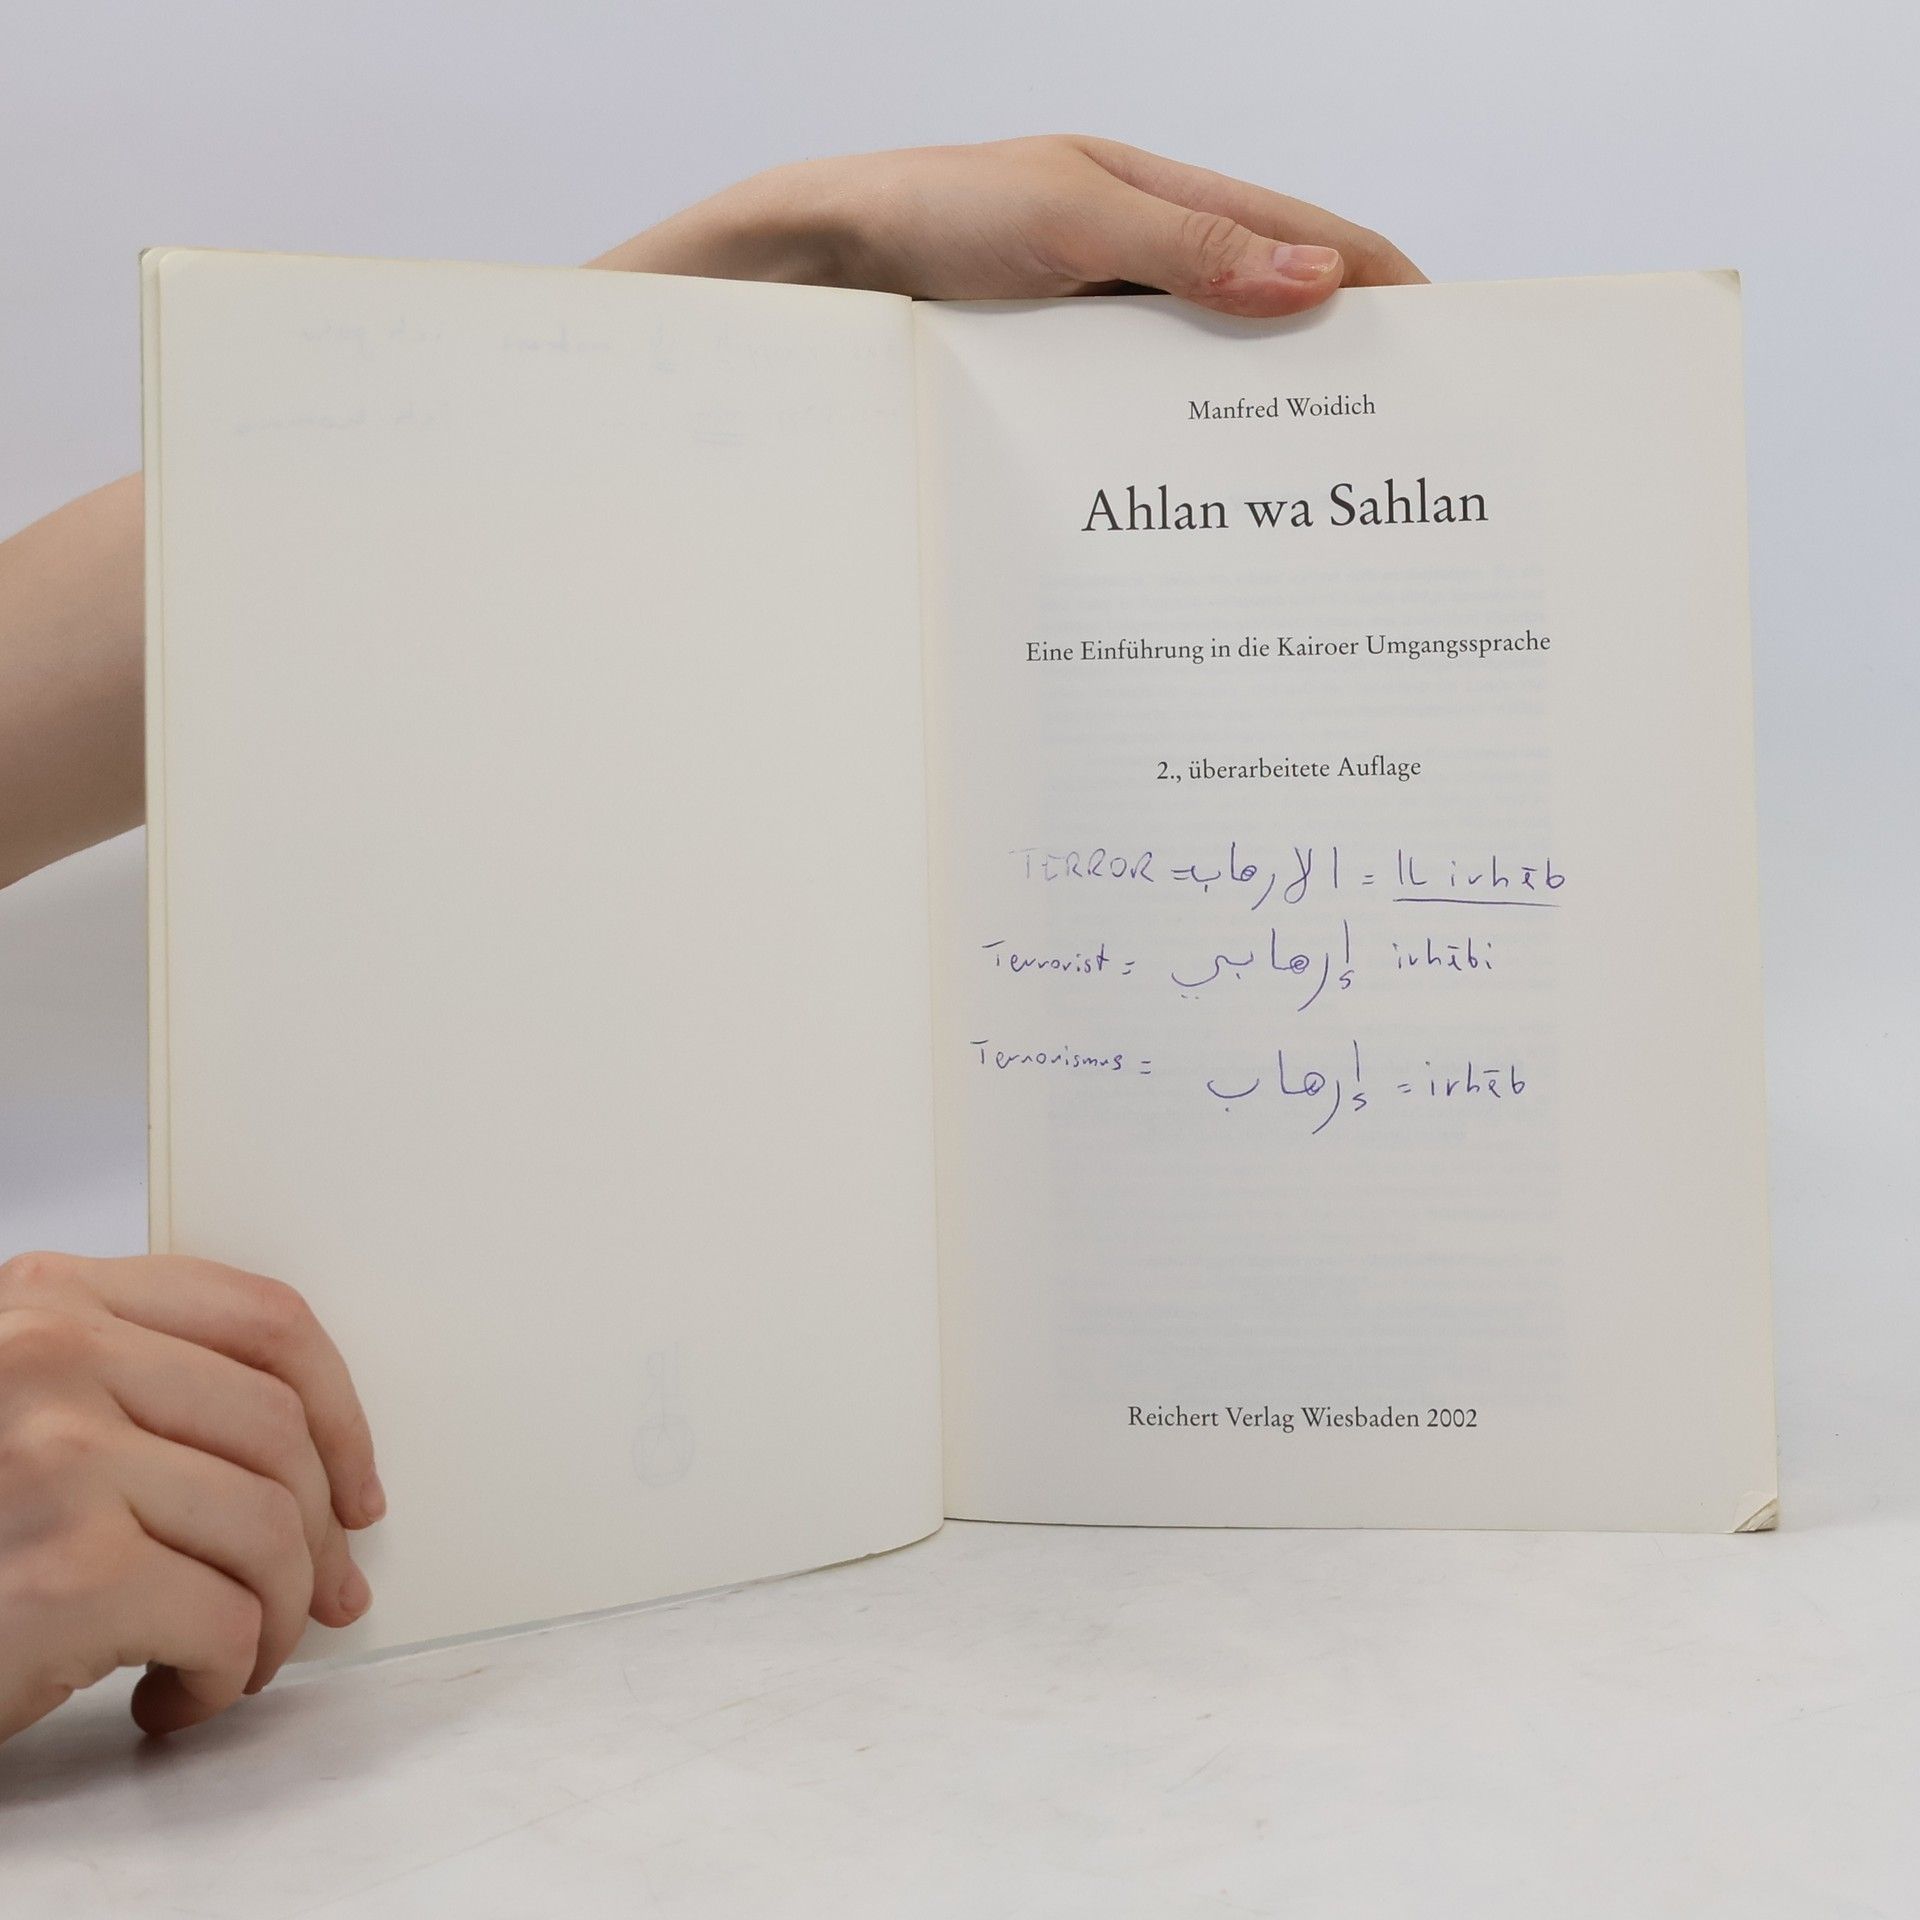 Manfred Woidich
Ahlan wa Sahlan
Eine Einführung in die Kairoer Umgangssprache
2., überarbeitete Auflage
TERROR = الارهاب = IL irhēb
Terrorist = إرهابي irhēbi
Terrorismus = إرهاب = irhēb
Reichert Verlag Wiesbaden 2002